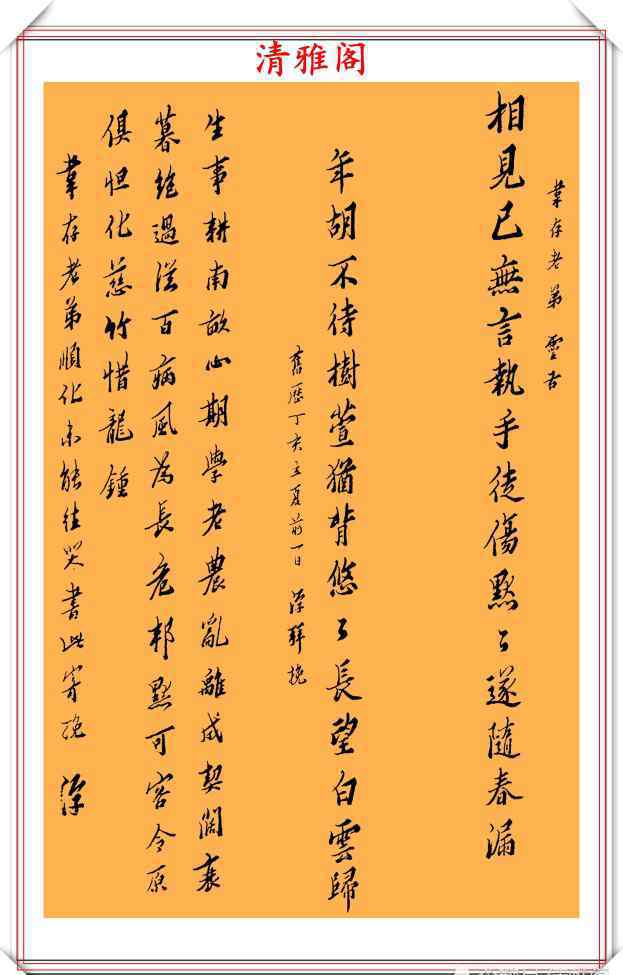 清雅阁
葦存老弟 靈右
相見已無言執手徒傷默〻遂隨春漏
年胡不待樹萱猶背悠〻長望白雲歸
舊歷丁亥立夏前一日 浮拜挽
生事耕南畝心期學老農亂離成契闊衰
暮絶過從百病風為長危邦默可容令原
俱怛化慈竹惜龍鍾
葦存老弟順化未能往哭書此寄挽 浮